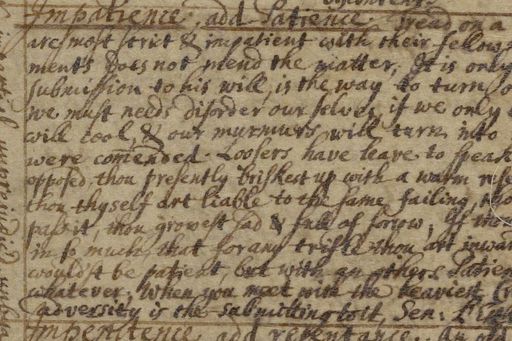 Impatience, add Patience. Tread on a
are most strict & impatient with their fellow
ments does not mend the matter, It is only
submission to his will, is the way to turn
we must needs disorder our selves, if we only
will cool, & our murmurs, will turn into
were com̄ended. Loosers have leave to speak
opposed, thou presently briskest up with a warm
thou thyself art liable to the same failing,
past it, thou growest sad & full of sorrow, If thou
in so much, that for any trifle thou art inwar
wouldst be patient, but with an others Patien
whatever, When you meet with the heaviest
adversity is the submitting to it, Sen:
Impenitence, add repentance. An old